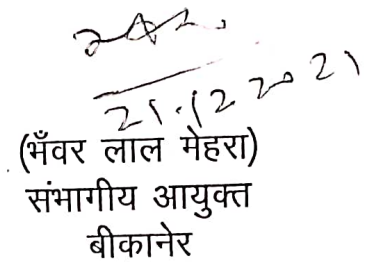 21.12 2021
(भँवर लाल मेहरा)
संभागीय आयुक्त
बीकानेर